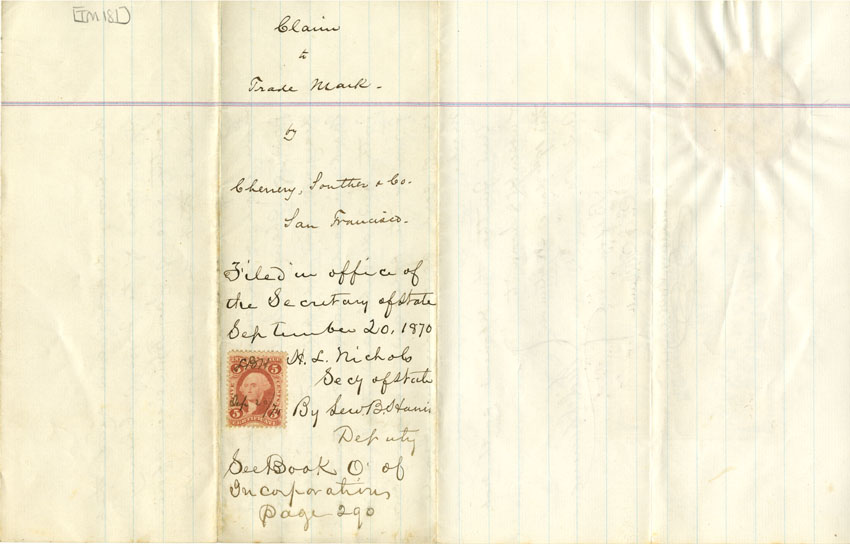 [TM 181]
Claim
to
Trade Mark.
by
Chenery, Souther & Co.
San Francisco.
Filed in office of
the Secretary of State
September 20, 1870
H. L. Nichols
Secy of State
By Lew B. Harris
Deputy
See Book O of
Incorporations
page 290
5 5